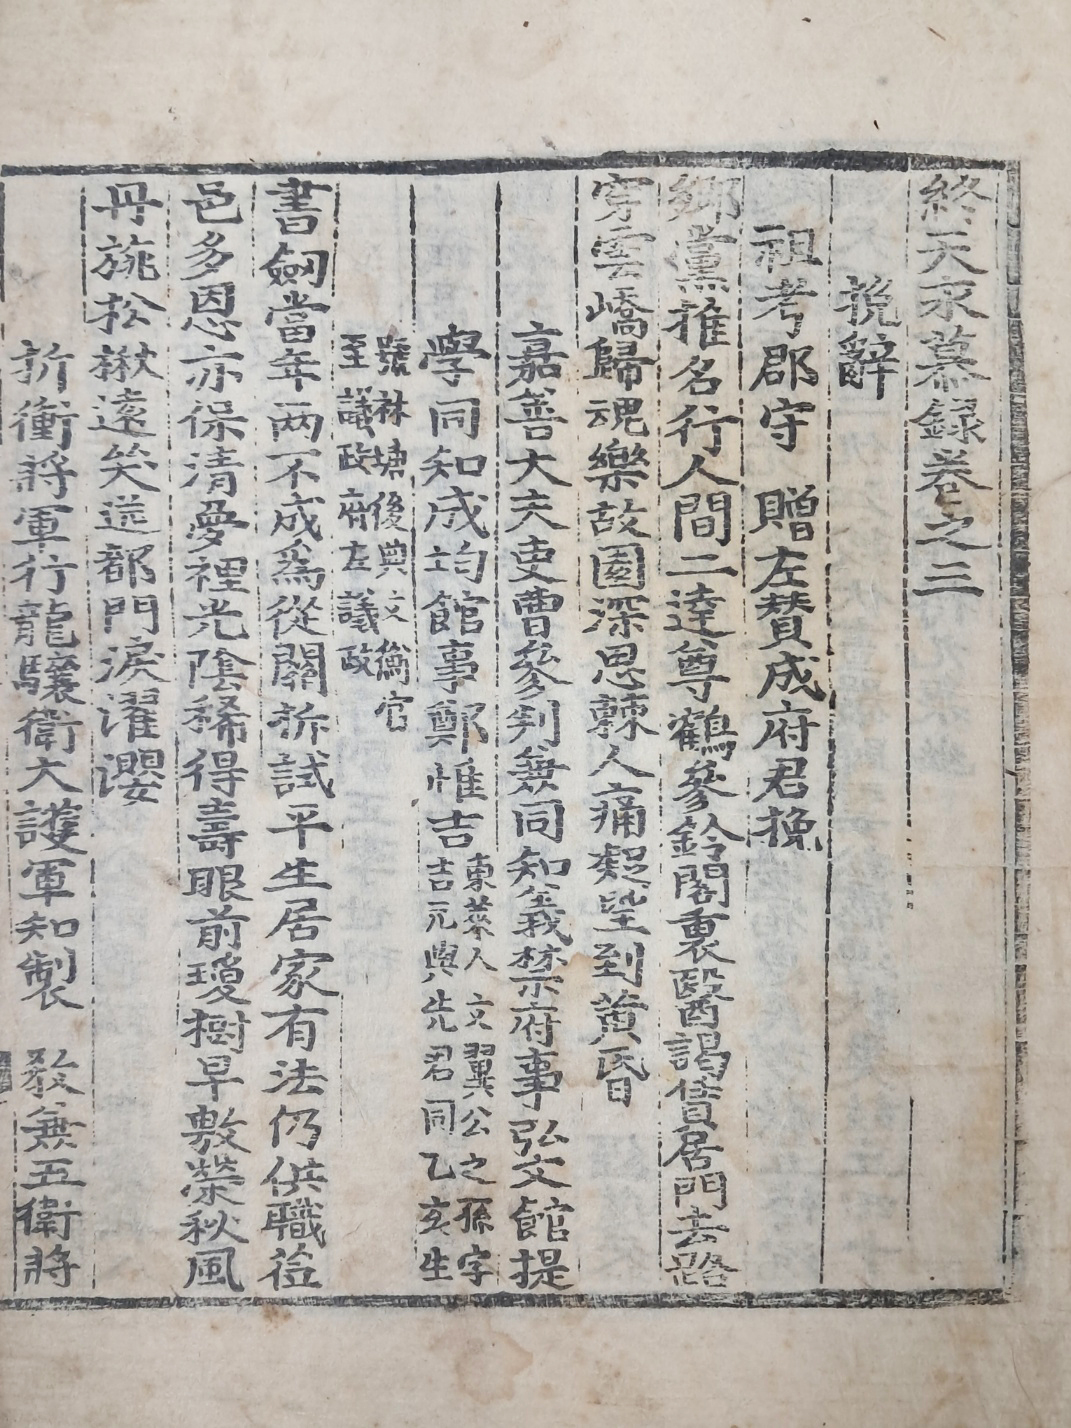 終天永慕録卷之三
挽辭
祖考郡守 贈左贊成府君挽
鄉黨推名行人間二達尊鶴參鈴閣裏醫謁賃居門去路
穿雲嶠歸魂樂故園深思棘人痛凝望到黃昏
嘉善大夫吏曹參判兼同知義禁府事弘文館提
學同知成均館事鄭惟吉東萊人文翼公之孫字吉元與先君同乙亥生
號林塘後典文衡官至議政府左議政
書劒當年兩不成爲從關柝試平生居家有法仍供職莅
邑多恩亦保淸憂裡光陰稀得壽眼前瓊樹早敷榮秋風
丹旐松楸遠笑送都門淚濯瓔
折衝將軍行龍驤衛大護軍知製 敎兼五衛將